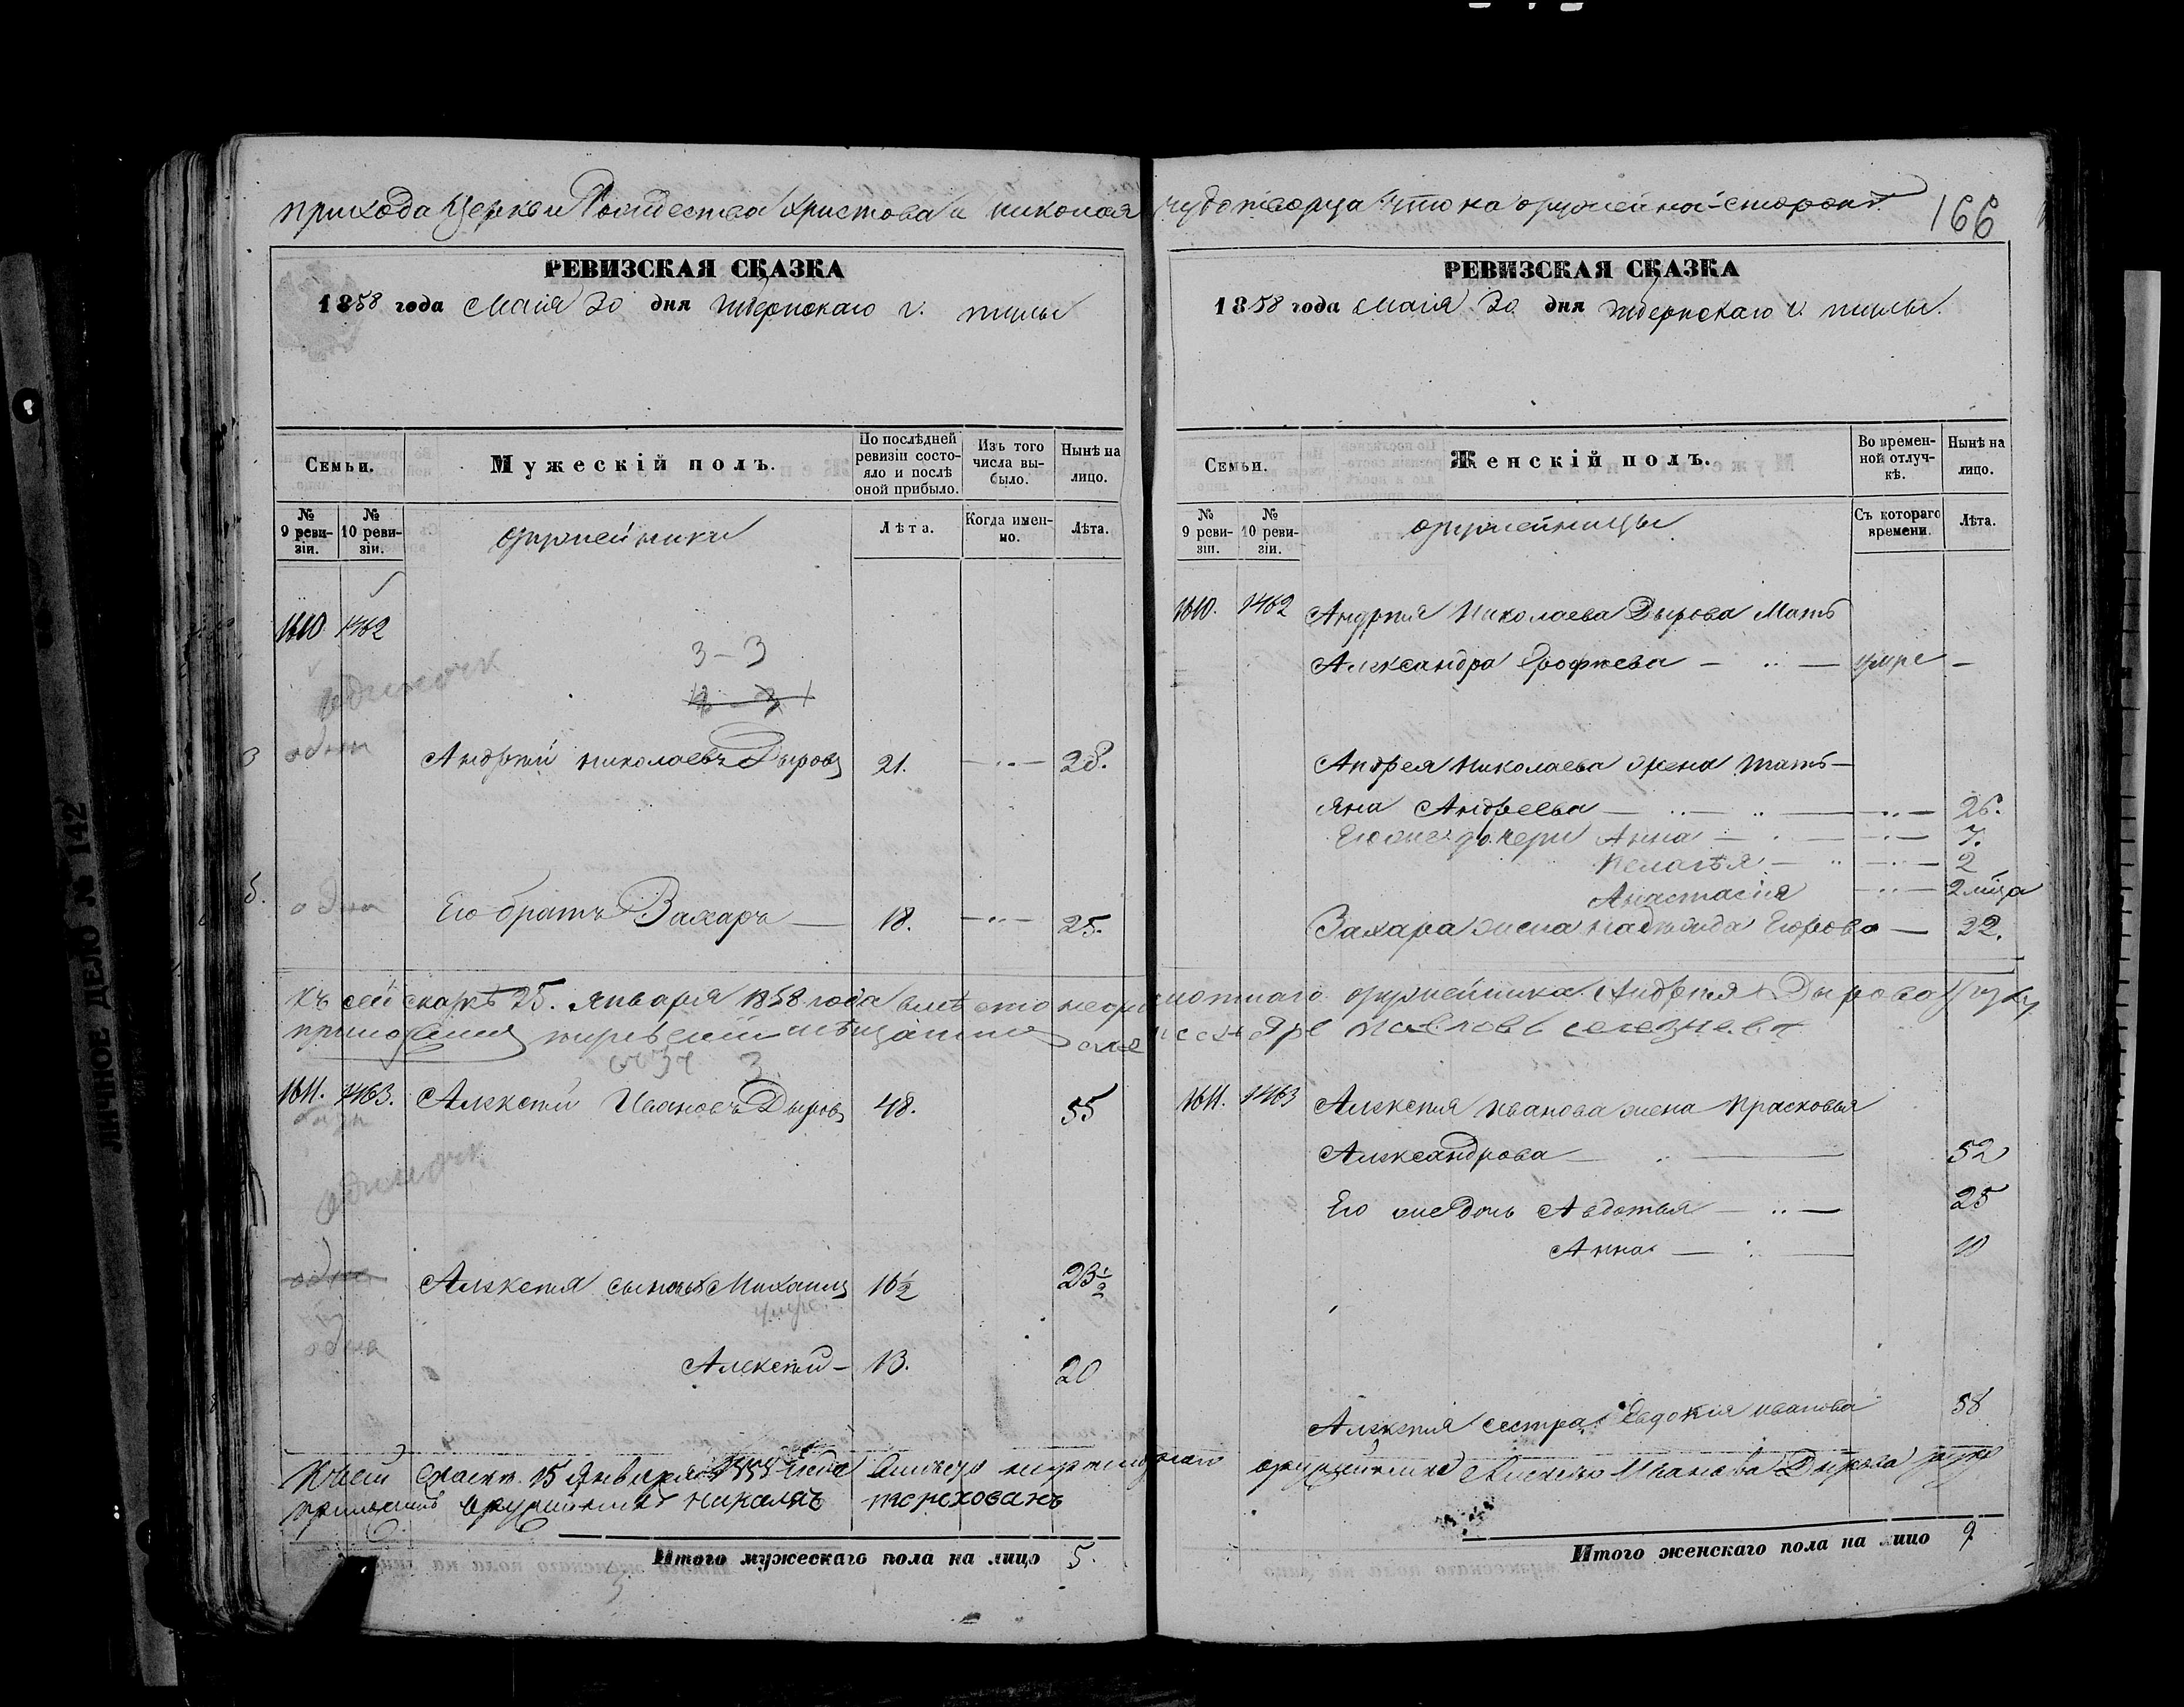 прихода Церкви Рождества Христова и николая чудотворца что на оружейной стороне
166
РЕВИЗСКАЯ СКАЗКА
1858 года Маія 20 дня Губернскаго г. тулы
Семьи.
Мужескій полъ.
По послѣдней ревизіи состояло и послѣ оной прибыло.
Изъ того числа выбыло.
Нынѣ на лицо.
№ 9 ревизіи.
№ 10 ревизіи.
оружейники
Лѣта.
Когда именно.
Лѣта.
1610 1462
3 – 3
одиночк
одна
Андрей николаевъ Дыровъ 21. 28.
одна
Его братъ Захаръ 18. 25.
Къ сей скаскѣ 25. января 1858 года вмѣсто неграмотнаго оружейника Андрея Дырова руку
приложилъ
3.
1611. 1463. Алексей Ивановъ Дыровъ 48. 55
одиночк
одна
Алексея сыновья Михаилъ 16½ 23½
умре
одна
Алексей – 13. 20
К сей скаски 15 Января 1858 года вместо неграмотнаго оружейника Алексея Иванова Дырова руку
приложилъ оружейникъ николай тереховъ
Итого мужескаго пола на лицо 5.
5
РЕВИЗСКАЯ СКАЗКА
1858 года Маія 20 дня Губернскаго г. тулы.
Семьи.
Женскій полъ.
Во временной отлучкѣ.
Нынѣ на лицо.
№ 9 ревизіи.
№ 10 ревизіи.
оружейницы
Съ котораго времени.
Лѣта.
1610. 1462 Андрея Николаева Дырова Мать
Александра Ерофеева умре –
Андрея Николаева жена Тать–
яна Андреева 26.
Его же дочери Анна 7.
Пелагѣя 2
Анастасія 2 мѣца
Захара жена надежда Егорова 22.
1611. 1463 Алексея иванова жена Прасковья
Александрова 52
Его же дочь Авдотья 25
Анна 10
Алексея сестра Евдокия иванова 58
Итого женскаго пола на лицо 9
ЛИЧНОЕ ДЕЛО № 142